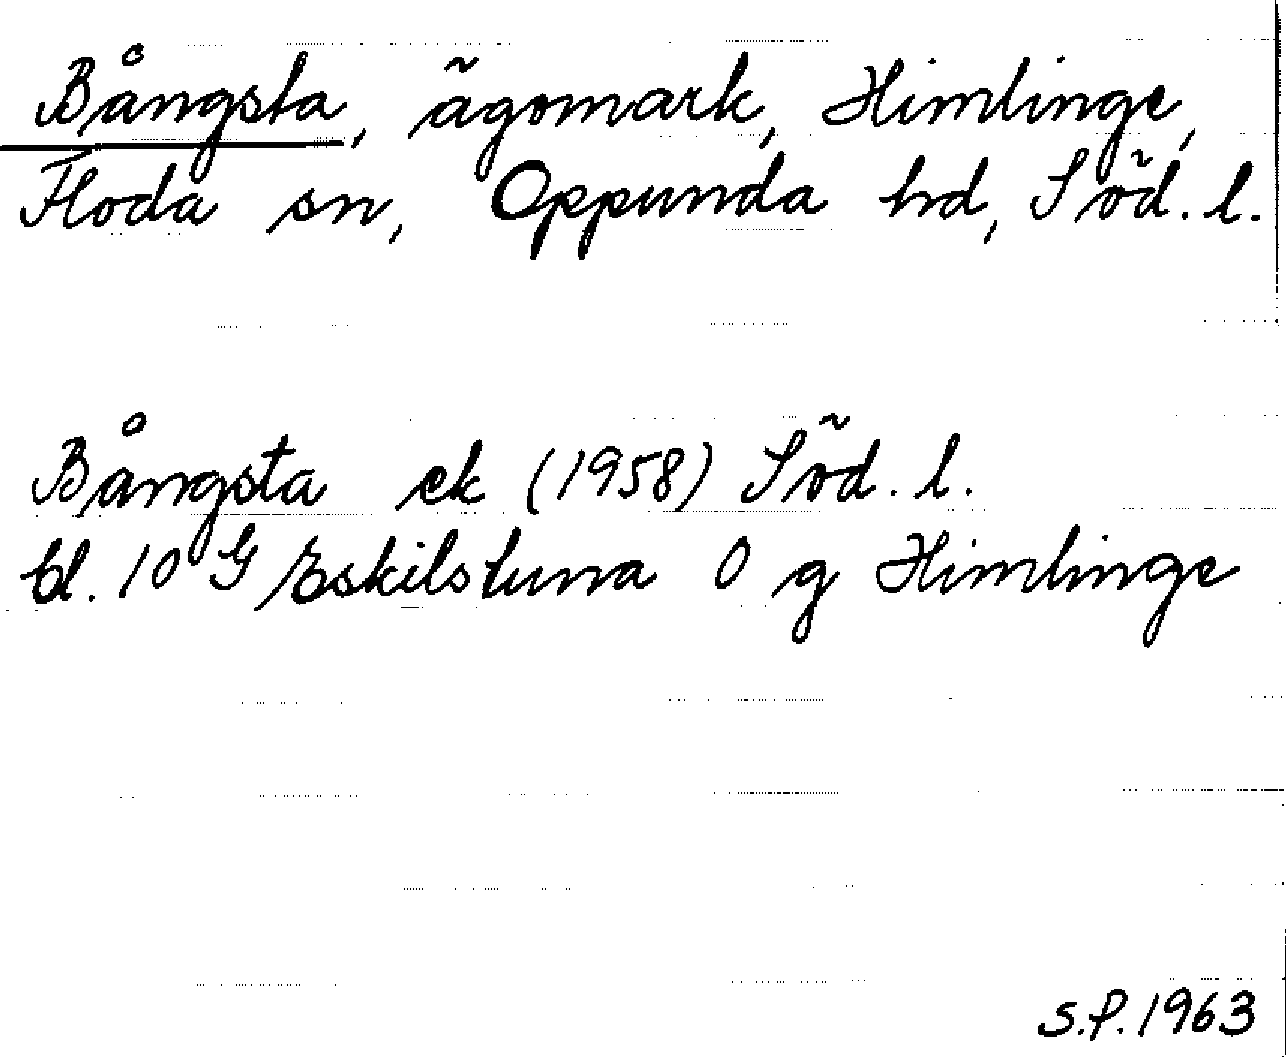 Bångsta, ägomark, Himlinge,
Floda sn, Oppunda hd, Söd. l.
Bångsta ek (1958) Söd. l.
bl. 10 G Eskilstuna 0 g Himlinge
S.P. 1963